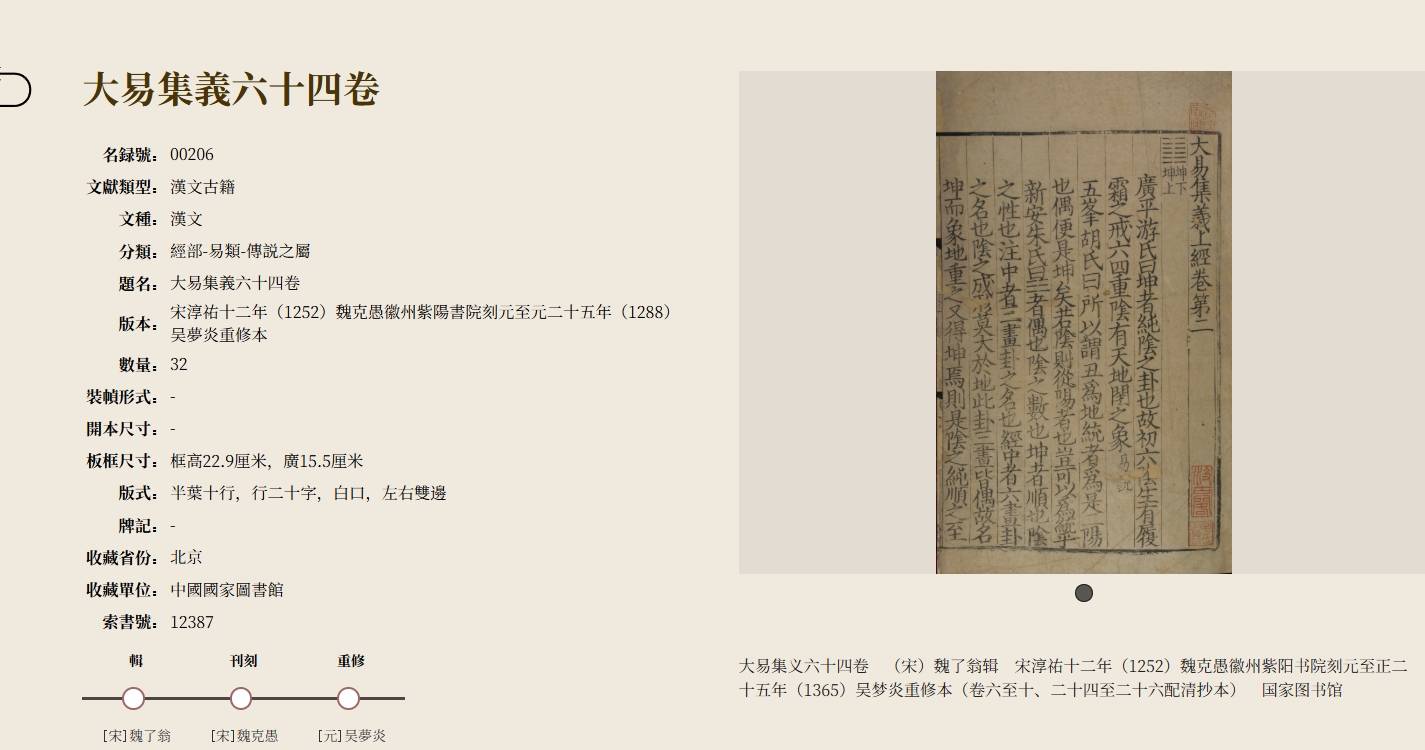 大易集義六十四卷
名録號： 00206
文獻類型： 漢文古籍
文種： 漢文
分類： 經部-易類-傳説之屬
題名： 大易集義六十四卷
版本： 宋淳祐十二年（1252）魏克愚徽州紫陽書院刻元至元二十五年（1288）
吴夢炎重修本
數量： 32
裝幀形式： -
開本尺寸： -
板框尺寸： 框高22.9厘米，廣15.5厘米
版式： 半葉十行，行二十字，白口，左右雙邊
牌記： -
收藏省份： 北京
收藏單位： 中國國家圖書館
索書號： 12387
輯 刊刻 重修
[宋]魏了翁 [宋]魏克愚 [元]吴夢炎
大易集義上經卷第二
坤下
坤上
廣平游氏曰坤者純陰之卦也故初六生有履
霜之戒六四重陰有天地閉之象易説
五峯胡氏曰所以謂丑爲地統者爲是二陽
也偶便是坤矣若陰則從陽者也豈可以爲統乎
新安朱氏曰三者偶也陰之數也坤者順也陰
之性也注中者三畫卦之名也經中者六畫卦
之名也陰之成莫大於地此卦三畫皆偶故名
坤而象地重之又得坤焉則是陰之純順之至
大易集义六十四卷 （宋）魏了翁辑 宋淳祐十二年（1252）魏克愚徽州紫阳书院刻元至正二
十五年（1365）吴梦炎重修本（卷六至十、二十四至二十六配清抄本） 国家图书馆